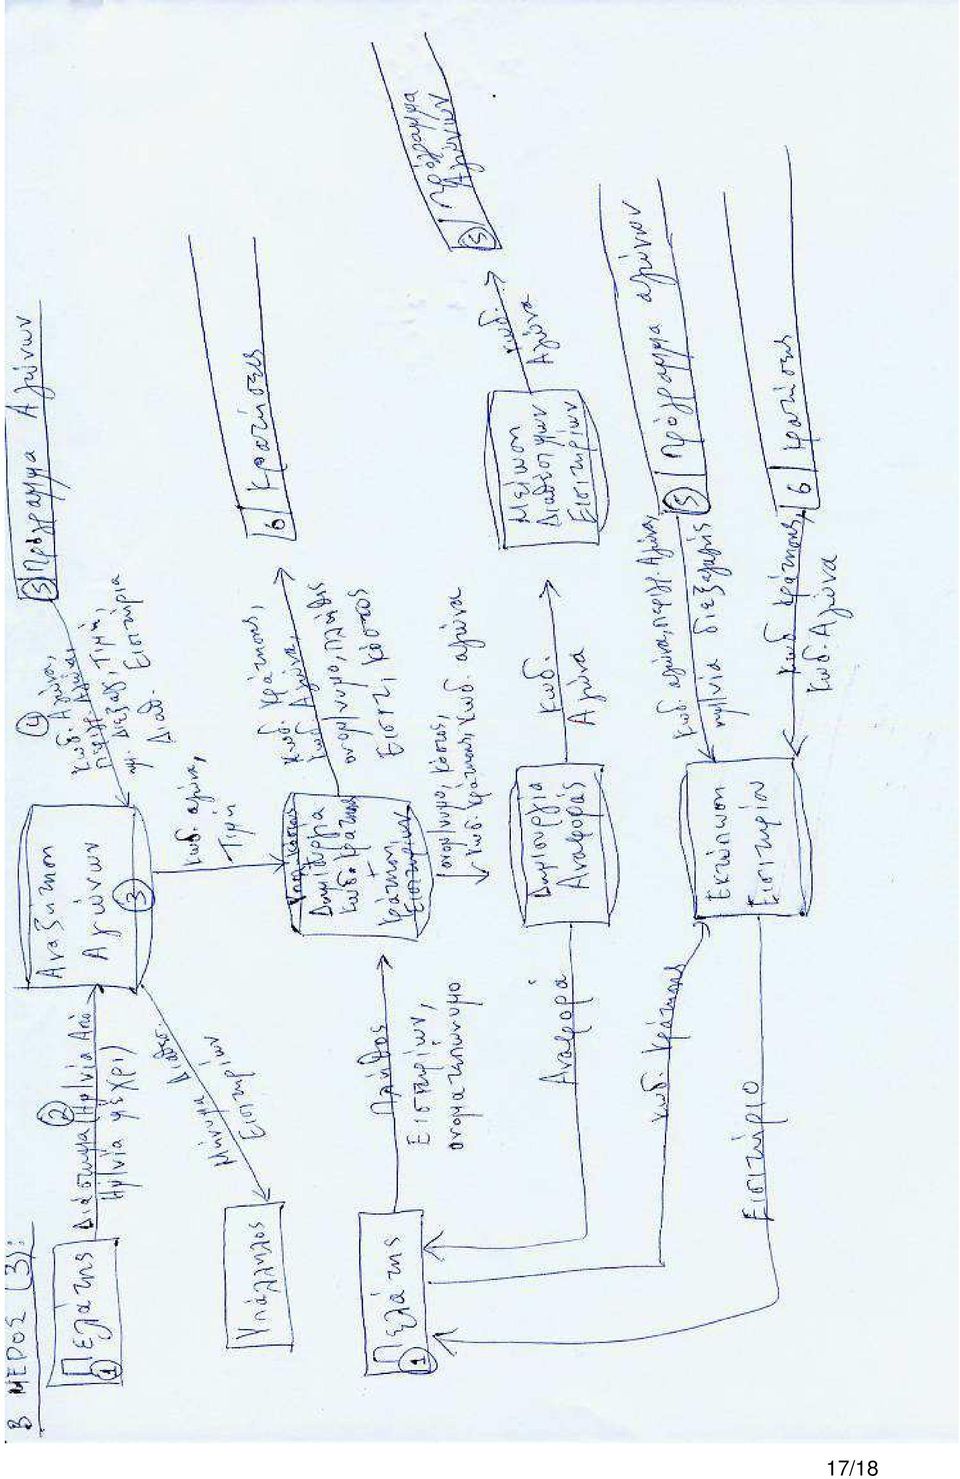 Β ΜΕΡΟΣ (3):
Πελάτης
1
2
Διάστημα (Ημ/νία Από
Ημ/νία μέχρι)
Αναζήτηση
Αγώνων
3
4
Κωδ. Αγώνα,
Περιγρ. Αγώνα,
ημ. Διεξαγ, Τιμή,
Διαθ. Εισιτήρια
5 Πρόγραμμα Αγώνων
Μήνυμα Διαθεσ.
Εισιτηρίων
Υπάλληλος
Κωδ. αγώνα,
Τιμή
Πελάτης
1
Πλήθος
Εισιτηρίων,
ονοματεπώνυμο
Υπολ. Κόστους
Δημιουργία
Κωδ. Κράτησης
+
Κράτηση
Εισιτηρίων
Κωδ. Κράτησης,
Κωδ Αγώνα,
ονομ/νυμο, πλήθος
Εισιτ, Κόστος
6 Κρατήσεις
ονομ/νυμο, Κόστος,
Κωδ. Κράτησης, Κωδ. αγώνα
Αναφορά
Δημιουργία
Αναφοράς
Κωδ.
Αγώνα
Μείωση
Διαθέσιμων
Εισιτηρίων
Κωδ.
Αγώνα
5 Πρόγραμμα
Αγώνων
Κωδ. Κράτησης
Εκτύπωση
Εισιτηρίου
Κωδ. αγώνα, περιγρ. Αγώνα,
ημ/νία διεξαγωγής
5 Πρόγραμμα αγώνων
Κωδ Κράτησης,
Κωδ. Αγώνα
6 Κρατήσεις
Εισιτήριο
17/18